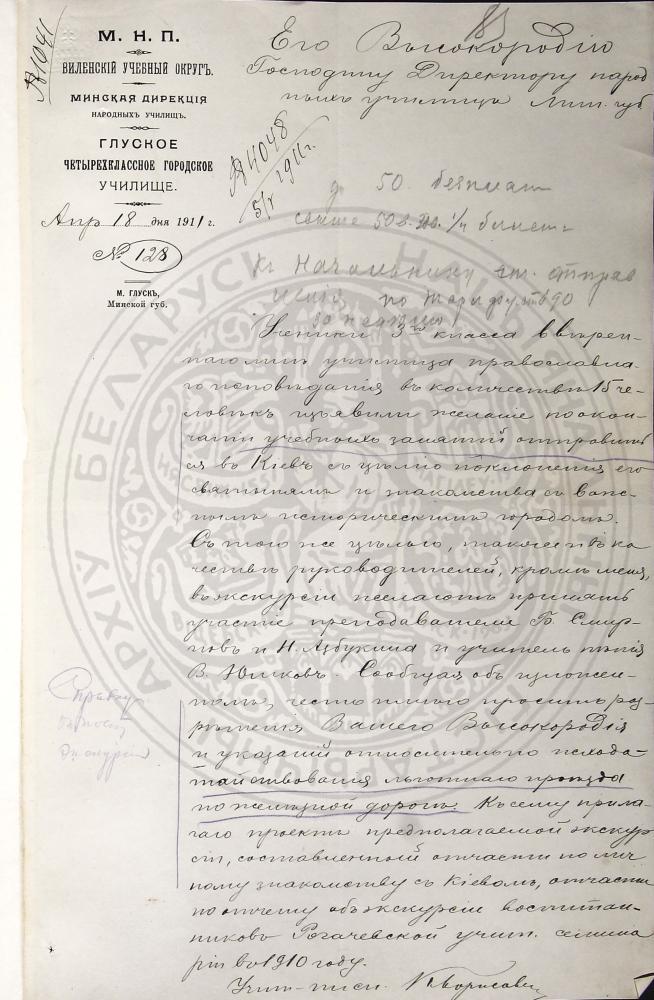 № 1041
М. Н. П.
ВИЛЕНСКІЙ УЧЕБНЫЙ ОКРУГЪ.
МИНСКАЯ ДИРЕКЦІЯ
НАРОДНЫХЪ УЧИЛИЩЪ.
ГЛУСКОЕ
ЧЕТЫРЕХКЛАССНОЕ ГОРОДСКОЕ
УЧИЛИЩЕ.
Апр 18 дня 1911 г.
№ 128
М. ГЛУСКЪ,
Минской губ.
Его Высокородію
Господину Директору народ
ныхъ училищъ Мин. губ
№ 4048
1911 г.
до 50. безплат
свыше 50
Къ Начальнику ст. отправ
ленія по тарифу
Ученики 3го класса ввѣрен-
наго мнѣ училища православна
го исповѣданія въ количествѣ 15 че-
ловѣкъ изъявили желаніе по окон-
чаніи учебныхъ занятій отправить
ся въ Кіевъ съ цѣлію поклоненія его
святынямъ и знакомства съ
историческимъ городомъ.
Съ тою же цѣлью, также и въ ка
чествѣ руководителей, кромѣ меня,
въ экскурсіи желаютъ принять
участіе преподаватели Б. Смир-
новъ и Н. Азбукинъ и учитель пѣнія
В. Юшковъ. Сообщая объ изложен-
номъ, честь имѣю просить раз
рѣшенія Вашего Высокородія
и указаній относительно исхода
тайствованія льготнаго проѣзда
по желѣзной дорогѣ. Къ сему прила
гаю проектъ предполагаемой экскур
сіи, составленный отчасти по лич
ному знакомству съ Кіевомъ, отчасти
по отчету объ экскурсіи воспитан-
никовъ Рогачевской учит. семина
ріи въ 1910 году.
Учит.-инсп.